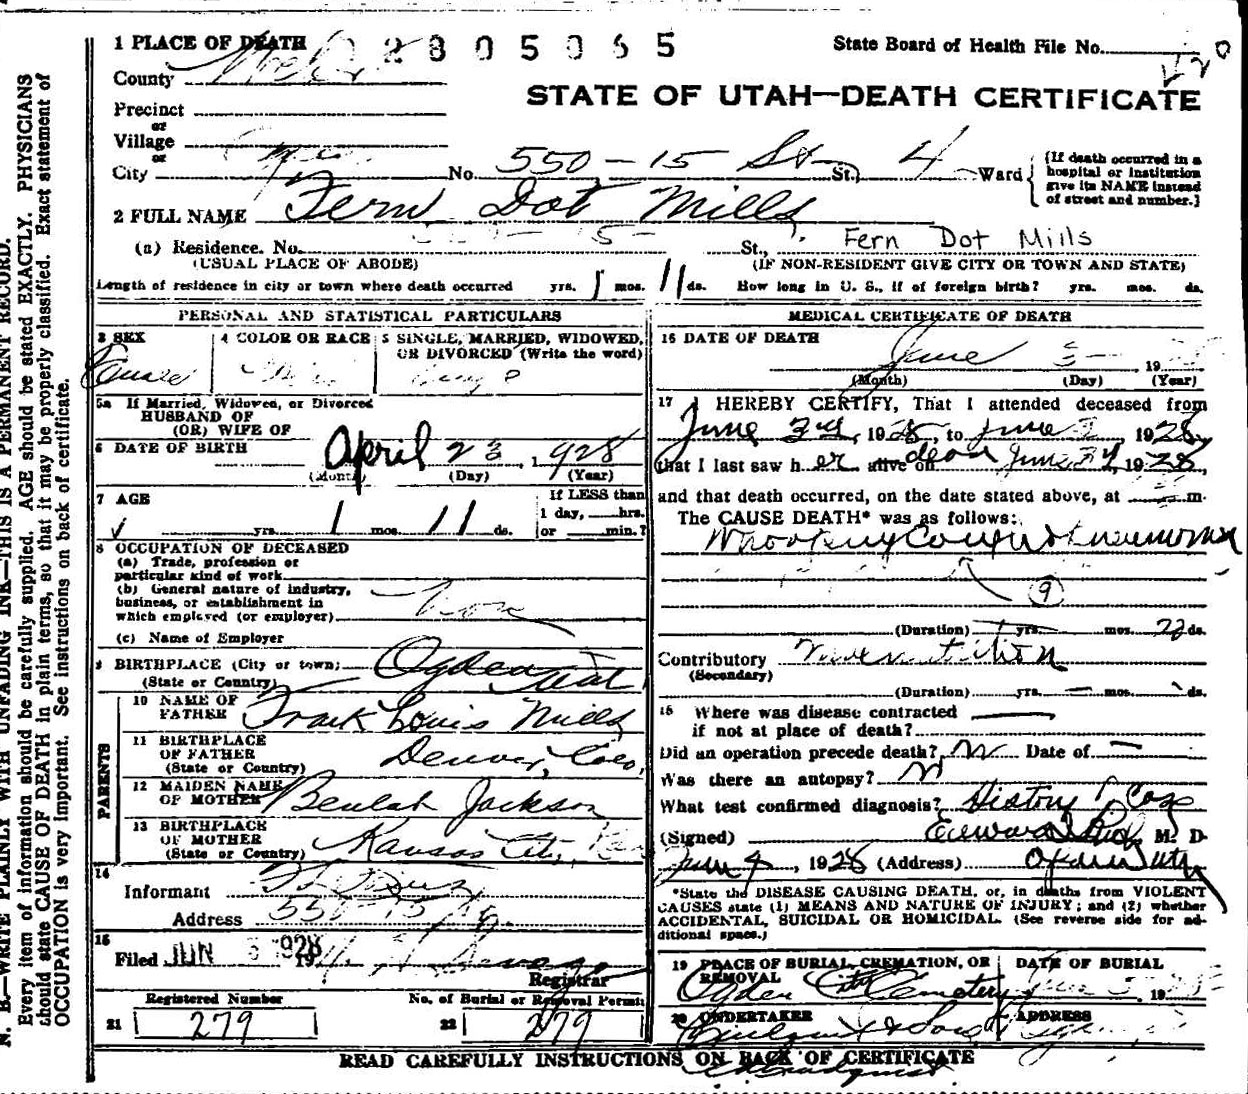 N. B.—WRITE PLAINLY WITH UNFADING INK—THIS IS A PERMANENT RECORD.
Every item of information should be carefully supplied. AGE should be stated EXACTLY. PHYSICIANS
should state CAUSE OF DEATH in plain terms, so that it may be properly classified. Exact statement of
OCCUPATION is very important. See instructions on back of certificate.
1 PLACE OF DEATH
2805065
State Board of Health File No.
County Weber
STATE OF UTAH—DEATH CERTIFICATE
Precinct
or
Village
or
City
No. 550 - 15 St St., 4 Ward
(If death occurred in a
hospital or institution
give its NAME instead
of street and number.)
2 FULL NAME Fern Dot Mills
(a) Residence. No. St., Fern Dot Mills
(USUAL PLACE OF ABODE)
(IF NON-RESIDENT GIVE CITY OR TOWN AND STATE)
Length of residence in city or town where death occurred yrs. 1 mos. 11 ds. How long in U. S., if of foreign birth? yrs. mos. ds.
PERSONAL AND STATISTICAL PARTICULARS
3 SEX
Female
4 COLOR OR RACE
5 SINGLE, MARRIED, WIDOWED,
OR DIVORCED (Write the word)
5a If Married, Widowed, or Divorced
HUSBAND OF
(OR) WIFE OF
6 DATE OF BIRTH April 23, 1928
(Month) (Day) (Year)
7 AGE
yrs. 1 mos. 11 ds.
If LESS than
1 day, hrs.
or min.?
8 OCCUPATION OF DECEASED
(a) Trade, profession or
particular kind of work
(b) General nature of industry,
business, or establishment in
which employed (or employer)
(c) Name of Employer
9 BIRTHPLACE (City or town; Ogden
(State or Country) Utah
PARENTS
10 NAME OF
FATHER Frank Louis Mills
11 BIRTHPLACE
OF FATHER
(State or Country) Denver, Colo,
12 MAIDEN NAME
OF MOTHER Beulah Jackson
13 BIRTHPLACE
OF MOTHER
(State or Country) Kansas City,
14
Informant
Address 550 - 15
15
Filed JUN 1928
Registrar
Registered Number
21 279
No. of Burial or Removal Permit
22 279
MEDICAL CERTIFICATE OF DEATH
16 DATE OF DEATH
June 19
(Month) (Day) (Year)
17 I HEREBY CERTIFY, That I attended deceased from
June 3rd, 1928, to June 1928,
that I last saw her alive on dead June 1928,
and that death occurred, on the date stated above, at m.
The CAUSE DEATH* was as follows:
Whooping Cough & Pneumonia
9
(Duration) yrs. mos. ds.
Contributory
(Secondary)
(Duration) yrs. mos. ds.
18 Where was disease contracted
if not at place of death?
Did an operation precede death? Date of
Was there an autopsy?
What test confirmed diagnosis? History
(Signed) M. D
June 4, 1928 (Address) Ogden Utah
*State the DISEASE CAUSING DEATH, or, in deaths from VIOLENT
CAUSES state (1) MEANS AND NATURE OF INJURY; and (2) whether
ACCIDENTAL, SUICIDAL OR HOMICIDAL. (See reverse side for ad-
ditional space.)
19 PLACE OF BURIAL, CREMATION, OR
REMOVAL
Ogden City Cemetery
DATE OF BURIAL
June 19
20 UNDERTAKER
ADDRESS
READ CAREFULLY INSTRUCTIONS ON BACK OF CERTIFICATE